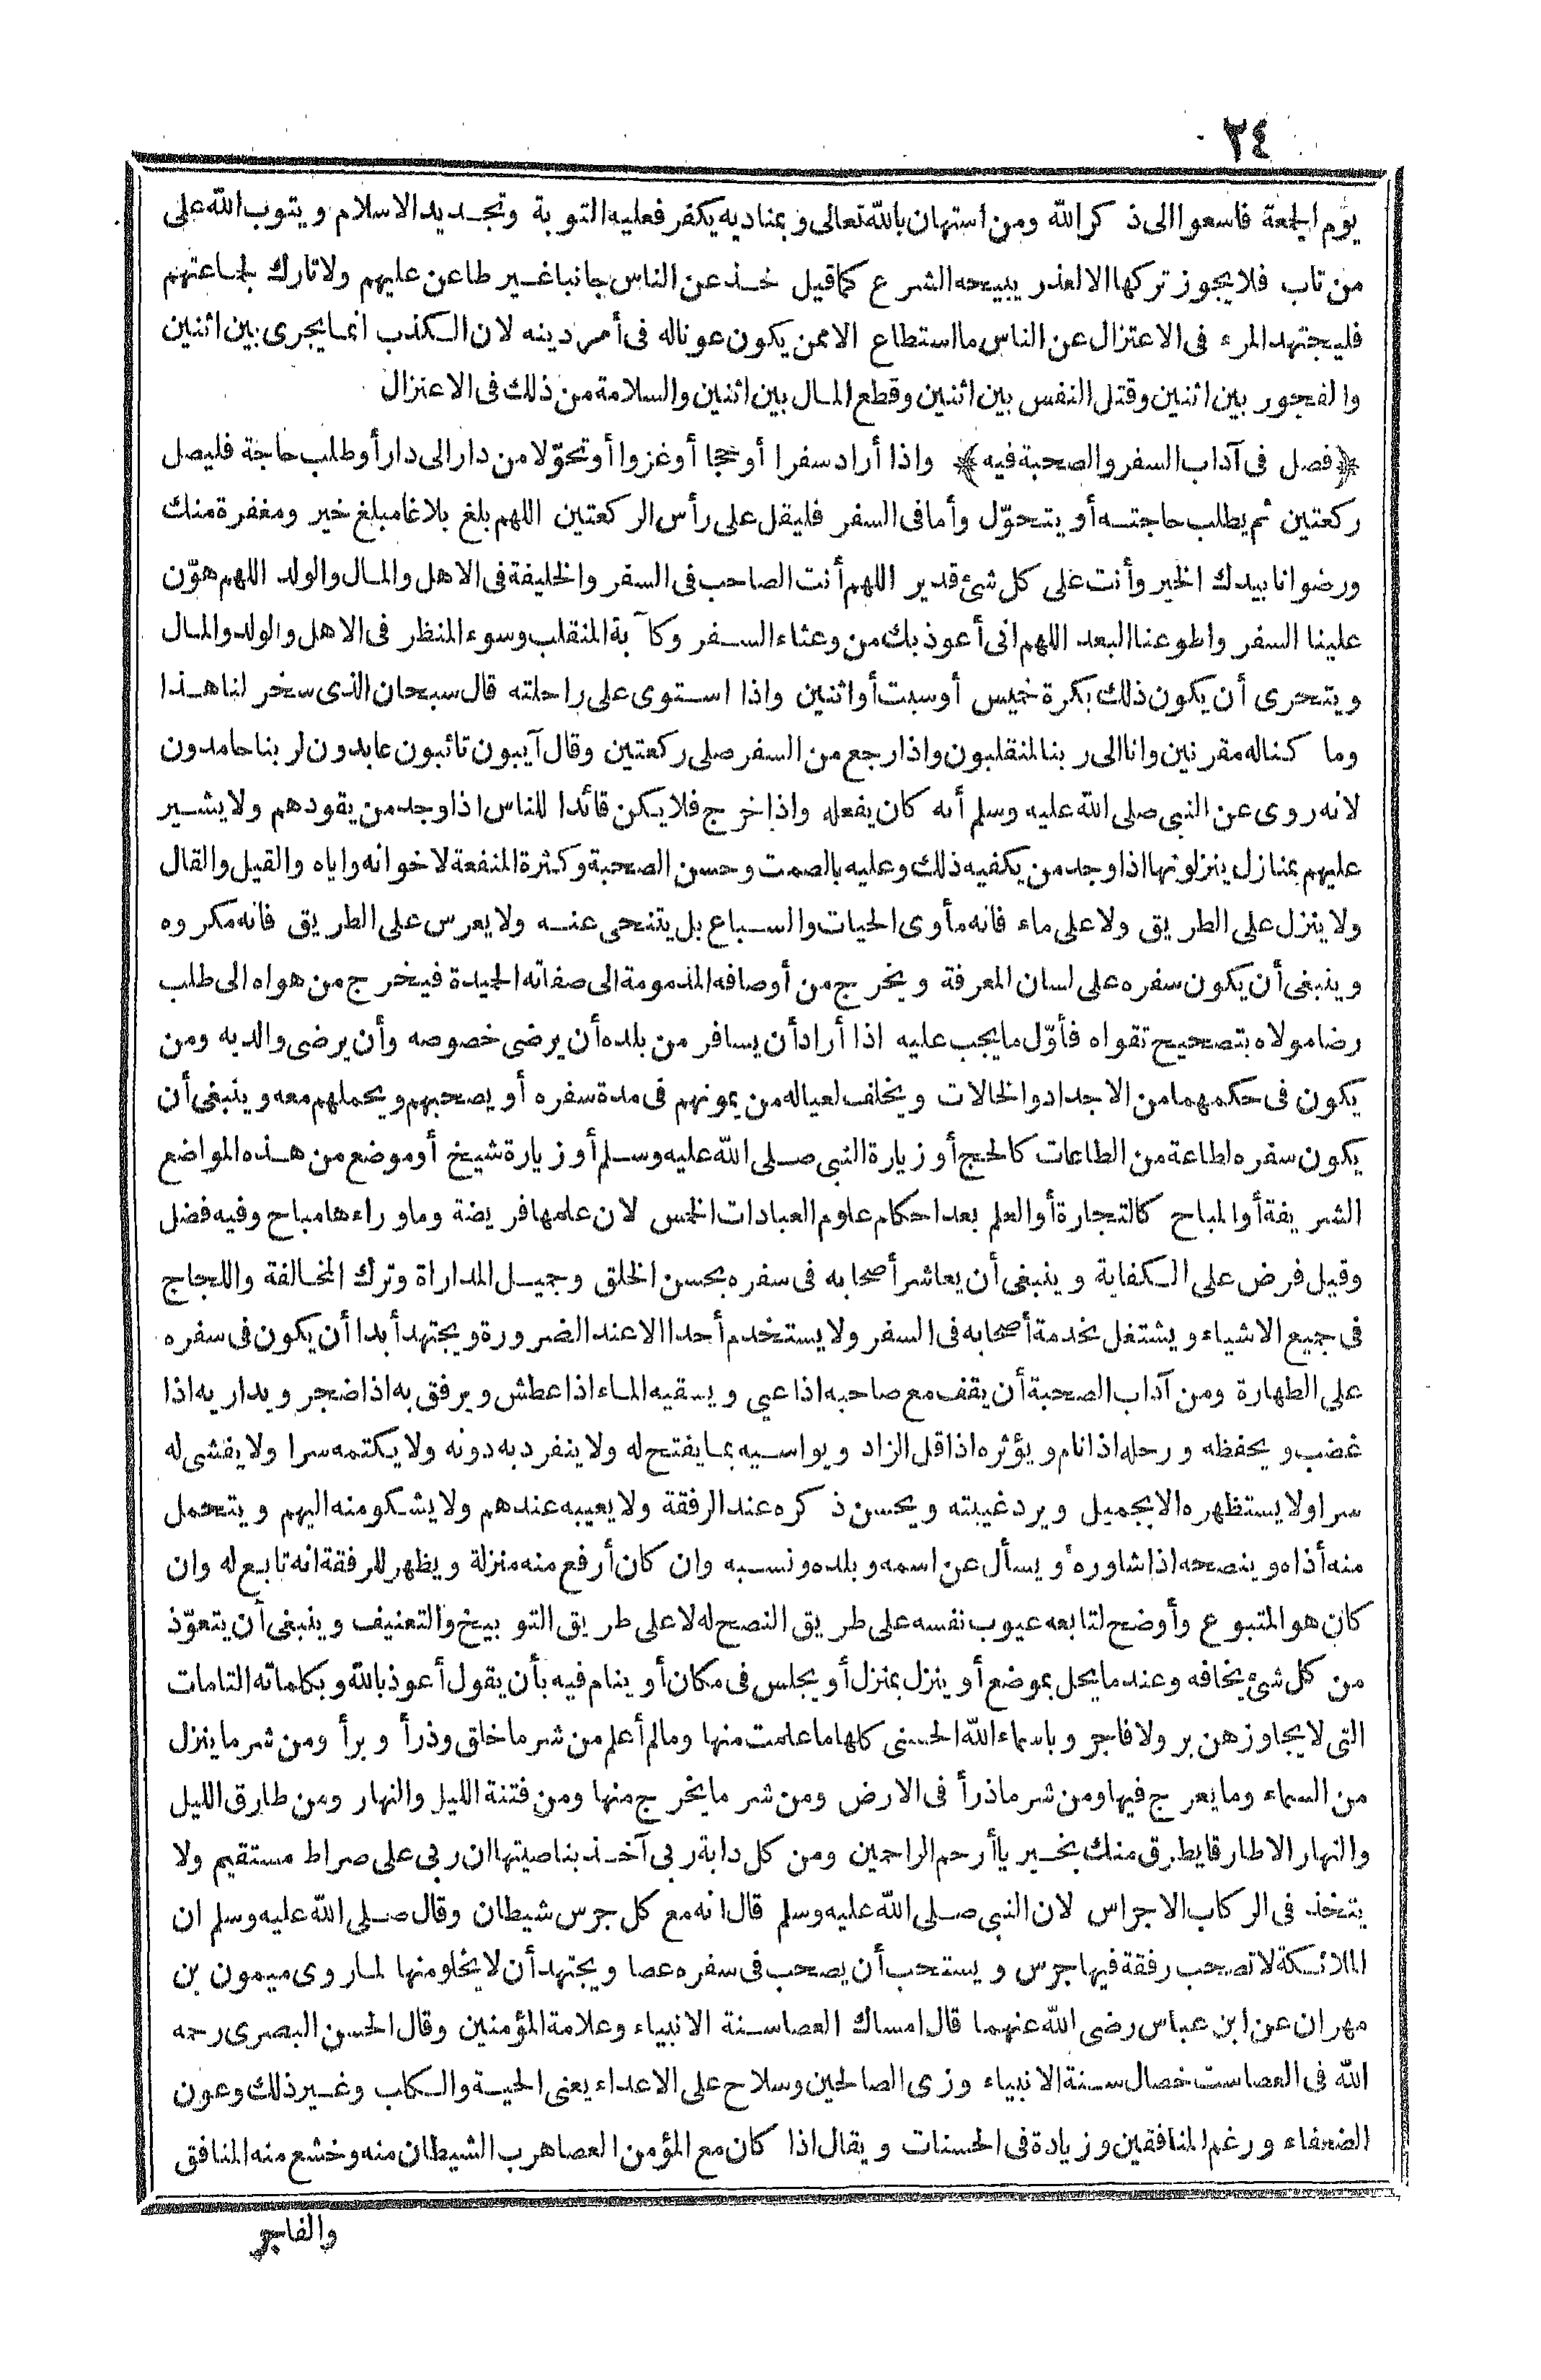 ٣٤
يوم الجمعة فاسعوا الى ذكر الله ومن استهان بالله تعالى وبمناديه يكفر فعليه التوبة وتجديد الاسلام ويتوب الله على
من تاب فلا يجوز تركها الا لعذر يبيحه الشرع كما قيل خذ عن الناس جانبا غير طاعن عليهم ولا تارك لجماعتهم
فليجتهد المرء فى الاعتزال عن الناس ما استطاع الا ممن يكون عوناله فى أمر دينه لان الكذب انما يجرى بين اثنين
والفجور بين اثنين وقتل النفس بين اثنين وقطع المال بين اثنين والسلامة من ذلك فى الاعتزال
﴿فصل فى آداب السفر والصحبة فيه﴾ واذا أراد سفرا أو حجا أو غزوا أو تحوّلا من دار الى دار أو طلب حاجة فليصل
ركعتين ثم يطلب حاجته أو يتحوّل وأما فى السفر فليقل على رأس الركعتين اللهم بلغ بلاغا مبلغ خير ومغفرة منك
ورضوانا بيدك الخير وأنت على كل شئ قدير اللهم أنت الصاحب فى السفر والخليفة فى الاهل والمال والولد اللهم هوّن
علينا السفر واطو عنا البعد اللهم انى أعوذ بك من وعثاء السفر وكآبة المنقلب وسوء المنظر فى الاهل والولد والمال
ويتحرى أن يكون ذلك بكرة خميس أو سبت أو اثنين واذا استوى على راحلته قال سبحان الذى سخر لنا هذا
وما كنا له مقرنين وانا الى ربنا لمنقلبون واذا رجع من السفر صلى ركعتين وقال آيبون تائبون عابدون لربنا حامدون
لانه روى عن النبى صلى الله عليه وسلم أنه كان يفعله واذا خرج فلا يكن قائدا للناس اذا وجد من يقودهم ولا يشير
عليهم بمنازل ينزلونها اذا وجد من يكفيه ذلك وعليه بالصمت وحسن الصحبة وكثرة المنفعة لاخوانه واياه والقيل والقال
ولا ينزل على الطريق ولا على ماء فانه مأوى الحيات والسباع بل يتنحى عنه ولا يعرس على الطريق فانه مكروه
وينبغى أن يكون سفره على لسان المعرفة ويخرج من أوصافه المذمومة الى صفاته الحميدة فيخرج من هواه الى طلب
رضا مولاه بتصحيح تقواه فأوّل ما يجب عليه اذا أراد أن يسافر من بلده أن يرضى خصومه وأن يرضى والديه ومن
يكون فى حكمهما من الاجداد والخالات ويخلف لعياله من يمونهم فى مدة سفره أو يصحبهم ويحملهم معه وينبغى أن
يكون سفره اطاعة من الطاعات كالحج أو زيارة النبى صلى الله عليه وسلم أو زيارة شيخ أو موضع من هذه المواضع
الشريفة أو المباح كالتجارة أو العلم بعد احكام علوم العبادات الخمس لان علمها فريضة وما وراءها مباح وفيه فضل
وقيل فرض على الكفاية وينبغى أن يعاشر أصحابه فى سفره بحسن الخلق وجميل المداراة وترك المخالفة واللجاج
فى جميع الاشياء ويشتغل بخدمة أصحابه فى السفر ولا يستخدم أحدا الا عند الضرورة ويجتهد أبدا أن يكون فى سفره
على الطهارة ومن آداب الصحبة أن يقف مع صاحبه اذا عيي ويسقيه الماء اذا عطش ويرفق به اذا ضجر ويداريه اذا
غضب ويحفظه ورحله اذا نام ويؤثره اذا قل الزاد ويواسيه بما يفتح له ولا ينفرد به دونه ولا يكتمه سرا ولا يفشى له
سرا ولا يستظهره الا بجميل ويرد غيبته ويحسن ذكره عند الرفقة ولا يعيبه عندهم ولا يشكو منه اليهم ويتحمل
منه أذاه وينصحه اذا شاوره ويسأل عن اسمه وبلده ونسبه وان كان أرفع منه منزلة ويظهر للرفقة انه تابع له وان
كان هو المتبوع وأوضح لتابعه عيوب نفسه على طريق النصح له لا على طريق التوبيخ والتعنيف وينبغى أن يتعوّذ
من كل شئ يخافه وعند ما يحل بموضع أو ينزل بمنزل أو يجلس فى مكان أو ينام فيه بأن يقول أعوذ بالله وبكلماته التامات
التى لا يجاوزهن بر ولا فاجر وباسماء الله الحسنى كلها ما علمت منها وما لم أعلم من شر ما خلق وذرأ وبرأ ومن شر ما ينزل
من السماء وما يعرج فيها ومن شر ما ذرأ فى الارض ومن شر ما يخرج منها ومن فتنة الليل والنهار ومن طارق الليل
والنهار الا طارقا يطرق منك بخير يا أرحم الراحمين ومن كل دابة ربى آخذ بناصيتها ان ربى على صراط مستقيم ولا
يتخذ فى الركاب الاجراس لان النبى صلى الله عليه وسلم قال انه مع كل جرس شيطان وقال صلى الله عليه وسلم ان
الملائكة لا تصحب رفقة فيها جرس ويستحب أن يصحب فى سفره عصا ويجتهد أن لا يخلو منها لما روى ميمون بن
مهران عن ابن عباس رضى الله عنهما قال امساك العصا سنة الانبياء وعلامة المؤمنين وقال الحسن البصرى رحمه
الله فى العصا ست خصال سنة الانبياء وزى الصالحين وسلاح على الاعداء يعنى الحية والكلب وغير ذلك وعون
الضعفاء ورغم المنافقين وزيادة فى الحسنات ويقال اذا كان مع المؤمن العصا هرب الشيطان منه وخشع منه المنافق
والفاجر